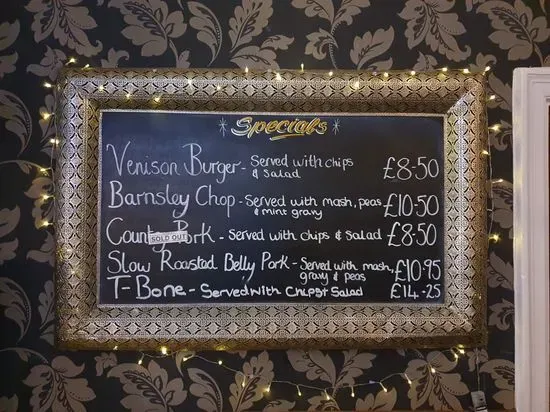 Specials
Venison Burger - Served with chips
& Salad £8.50
Barnsley Chop - Served with mash, peas
& mint gravy £10.50
SOLD OUT
- Served with chips & Salad £8.50
Slow Roasted Belly Pork - Served with mash,
gravy & peas £10.95
T-Bone - Served with Chips & Salad £14.25